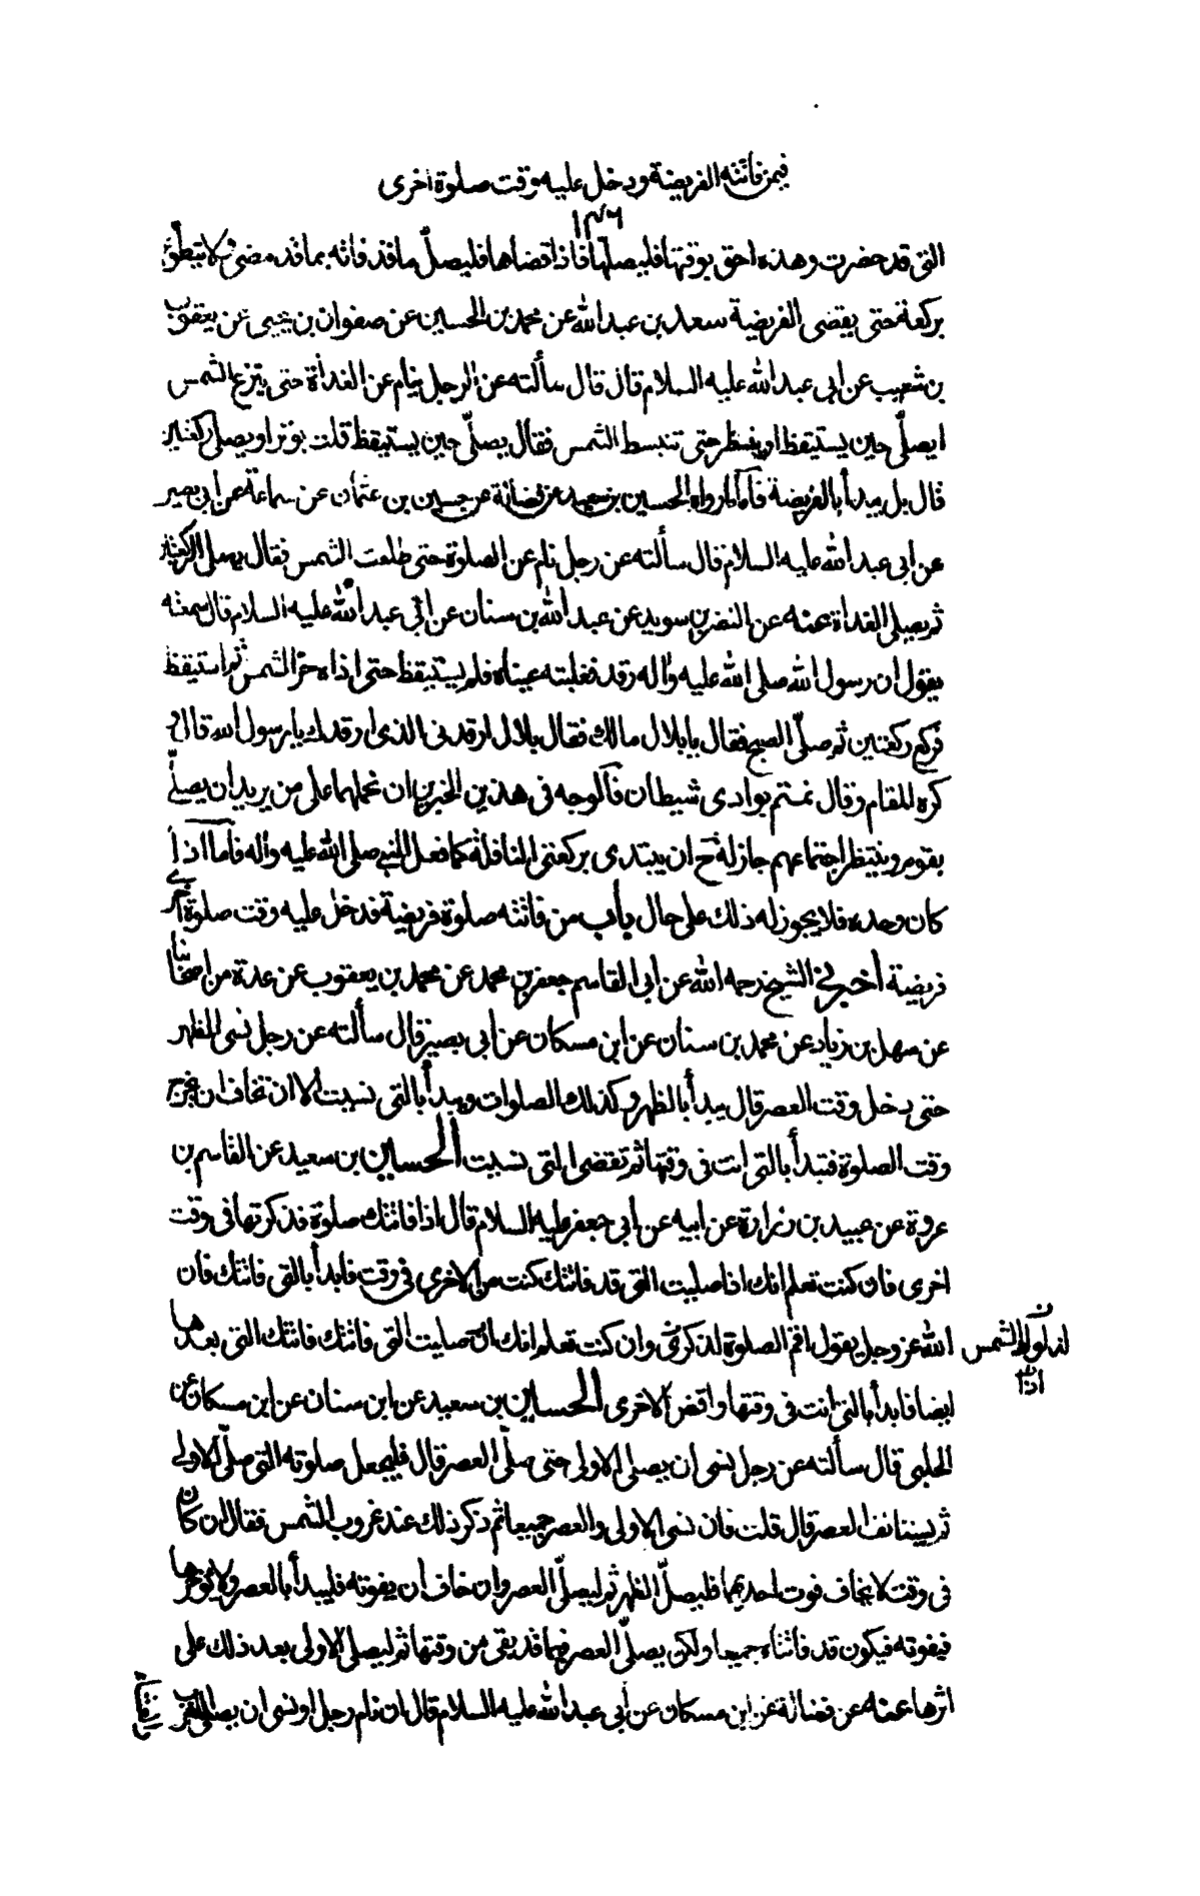 فيمن فاتته الفريضة ودخل عليه وقت صلوة اخرى
١٤٦
التى قد حضرت وهذه احق بوقتها فليصلها فاذا قضاها فليصلّ ما قد فاته بما قد مضى ولا يتطوّع
بركعة حتى يقضى الفريضة سعد بن عبد الله عن محمد بن الحسين عن صفوان بن يحيى عن يعقوب
بن شعيب عن ابى عبد الله عليه السلام قال قال سألته عن الرجل ينام عن الغداة حتى يبزغ الشمس
ايصلّى حين يستيقظ او ينتظر حتى تنبسط الشمس فقال يصلّى حين يستيقظ قلت يوتر او يصلى ركعتين
قال بل يبدأ بالفريضة فأما ما رواه الحسين بن سعيد عن فضالة عن حسين بن عثمان عن سماعة عن ابى بصير
عن ابى عبد الله عليه السلام قال سألته عن رجل نام عن الصلوة حتى طلعت الشمس فقال يصلى الركعتين
ثم يصلى الغداة عنه عن النضر بن سويد عن عبد الله بن سنان عن ابى عبد الله عليه السلام قال سمعته
يقول ان رسول الله صلى الله عليه وآله رقد فغلبته عيناه فلم يستيقظ حتى اذاه حرّ الشمس ثم استيقظ
فركع ركعتين ثم صلّى الصبح فقال يا بلال مالك فقال بلال ارقدنى الذى ارقدك يا رسول الله قال و
كره المقام وقال نمتم بوادى شيطان فالوجه فى هذين الخبرين ان نحملهما على من يريد ان يصلّى
بقوم وينتظر اجتماعهم جاز له ح ان يبتدى بركعتى النافلة كما فعل النبى صلى الله عليه وآله فأما اذا
كان وحده فلا يجوز له ذلك على حال باب من فاتته صلوة فريضة فدخل عليه وقت صلوة اخرى
فريضة أخبرنى الشيخ رحمه الله عن ابى القاسم جعفر بن محمد عن محمد بن يعقوب عن عدة من اصحابنا
عن سهل بن زياد عن محمد بن سنان عن ابن مسكان عن ابى بصير قال سألته عن رجل نسى الظهر
حتى دخل وقت العصر قال يبدأ بالظهر وكذلك الصلوات ويبدأ بالتى نسيت الا ان تخاف ان يخرج
وقت الصلوة فتبدأ بالتى انت فى وقتها ثم تقضى التى نسيت الحسين بن سعيد عن القاسم بن
عروة عن عبيد بن زرارة عن ابيه عن ابى جعفر عليه السلام قال اذا فاتتك صلوة فذكرتها فى وقت
اخرى فان كنت تعلم انك اذا صليت التى قد فاتتك كنت من الاخرى فى وقت فابدأ بالتى فاتتك فان
الله عز وجل يقول اقم الصلوة لذكرى وان كنت تعلم انك ان صليت التى فاتتك فاتتك التى بعدها
لدلوك الشمس
ايضا فابدأ بالتى انت فى وقتها واقض الاخرى الحسين بن سعيد عن ابن سنان عن ابن مسكان عن
الحلبى قال سألته عن رجل نسى ان يصلى الاولى حتى صلّى العصر قال فليجعل صلوته التى صلّى الاولى
ثم يستانف العصر قال قلت فان نسى الاولى والعصر جميعا ثم ذكر ذلك عند غروب الشمس فقال ان كان
فى وقت لا يخاف فوت احديهما فليصلّ الظهر ثم ليصلّى العصر وان خاف ان يفوته فليبدأ بالعصر ولا يؤخرها
فيفوته فيكون قد فاتتاه جميعا ولكن يصلّى العصر فيما قد بقى من وقتها ثم ليصلى الاولى بعد ذلك على
اثرها عنه عن فضالة عن ابن مسكان عن ابى عبد الله عليه السلام قال ان نام رجل او نسى ان يصلى المغرب